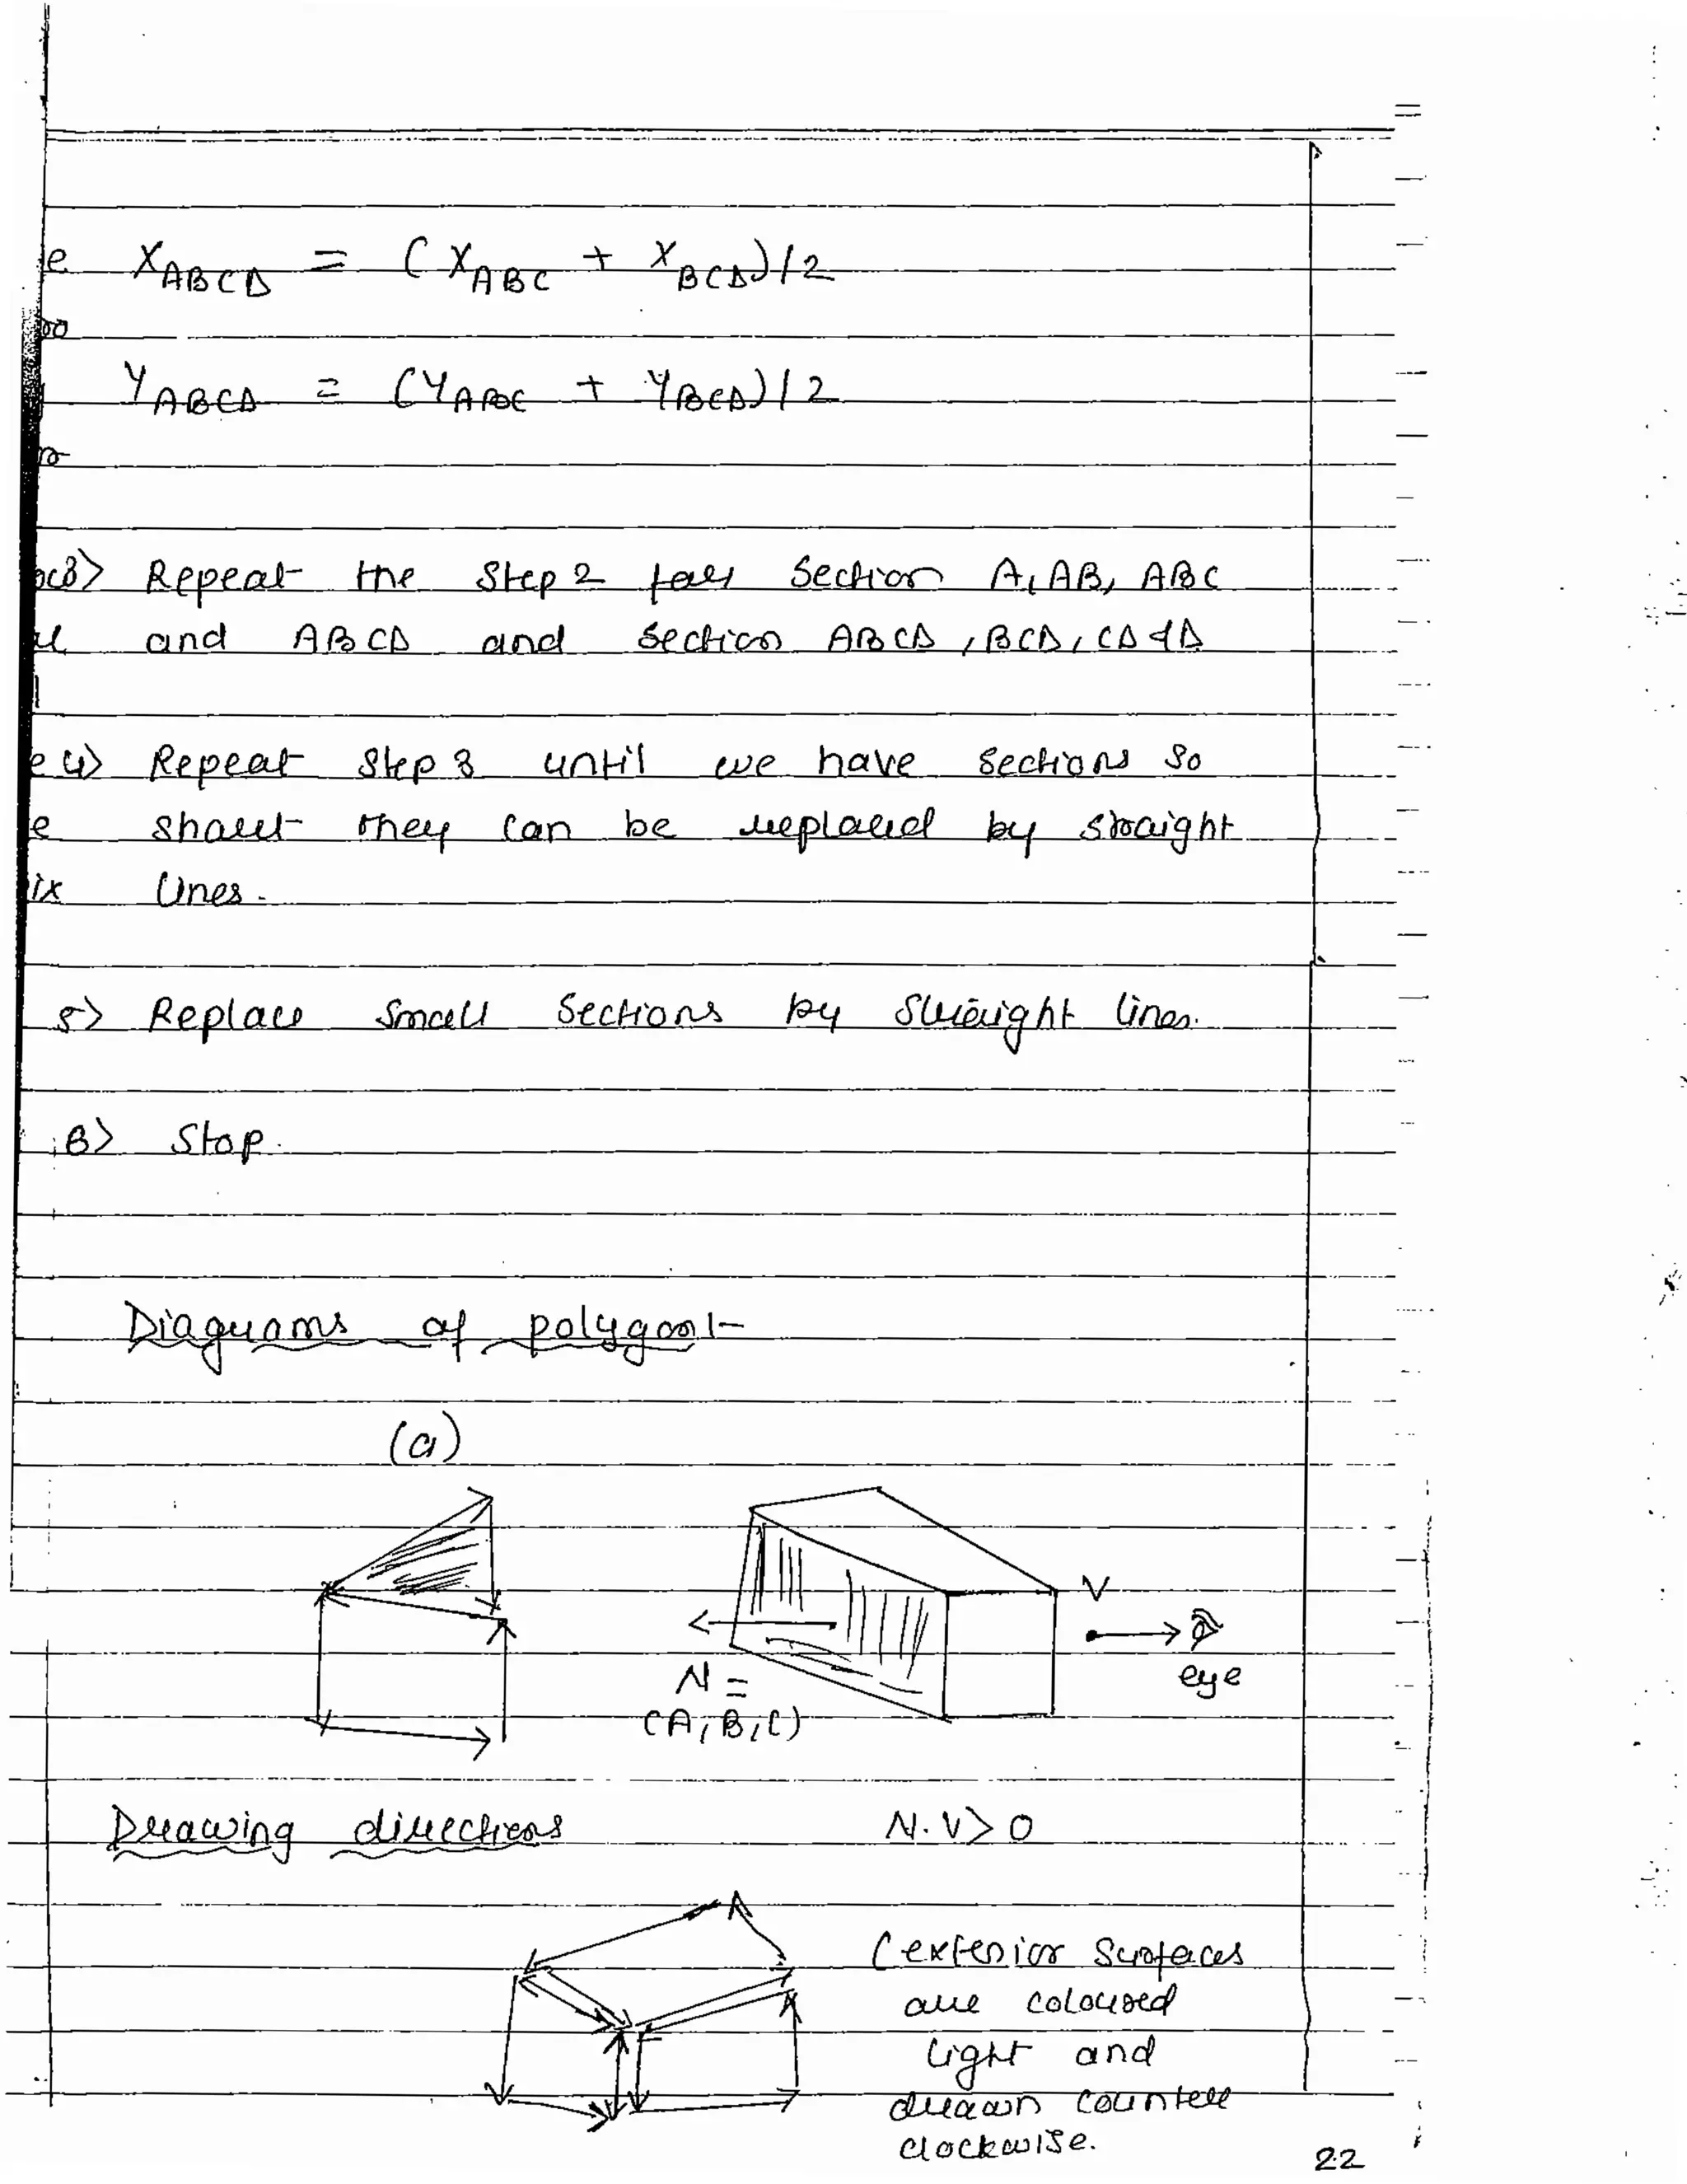 X_ABCD = (X_ABC + X_BCD)/2
Y_ABCD = (Y_ABC + Y_BCD)/2
3> Repeat the Step 2 for Section A, AB, ABC
and ABCD and section ABCD, BCD, CD & D
4> Repeat Step 3 until we have sections so
short they can be replaced by straight
lines.
5> Replace small sections by straight lines.
6> Stop.
Diagrams of polygon:-
(a)
V
eye
N =
(A, B, C)
Drawing directions N.V > 0
(exterior surfaces
are coloured
light and
drawn counter
clockwise.
22